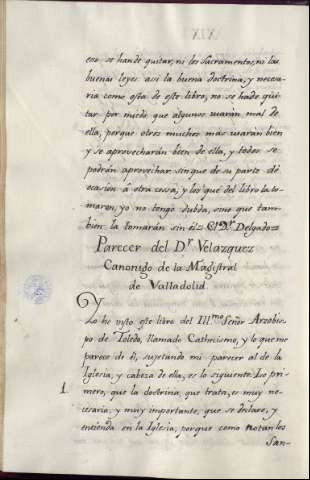 eso se han de quitar, ni los Sacramentos, ni las
buenas leyes asi la buena doctrina, y necesa-
ria como esta de este libro, no se hade qui-
tar por miedo que algunos usarán mal de
ella, porque otros muchos mas usarán bien
y se aprovecharán bien de ella, y todos se
podrán aprovechar sin que de su parte dé
ocasion á otra cossa, y los que del libro la to-
maren, yo no tengo dubda, sino que tam-
bien la tomarán sin él = El Dr. Delgado =
Parecer del Dr. Velazquez
Canonigo de la Magistral
de Valladolid
Yo he visto este libro del Ill.mo Señor Arzobis-
po de Toledo, llamado Cathecismo, y lo que me
parece de él, sujetando mi parecer al de la
Iglesia, y cabeza de ella, es lo siguiente: Lo pri-
1 mero, que la doctrina que trata, es muy ne-
cesaria, y muy importante, que se declare, y
entienda en la Iglesia, porque como notan los
San-